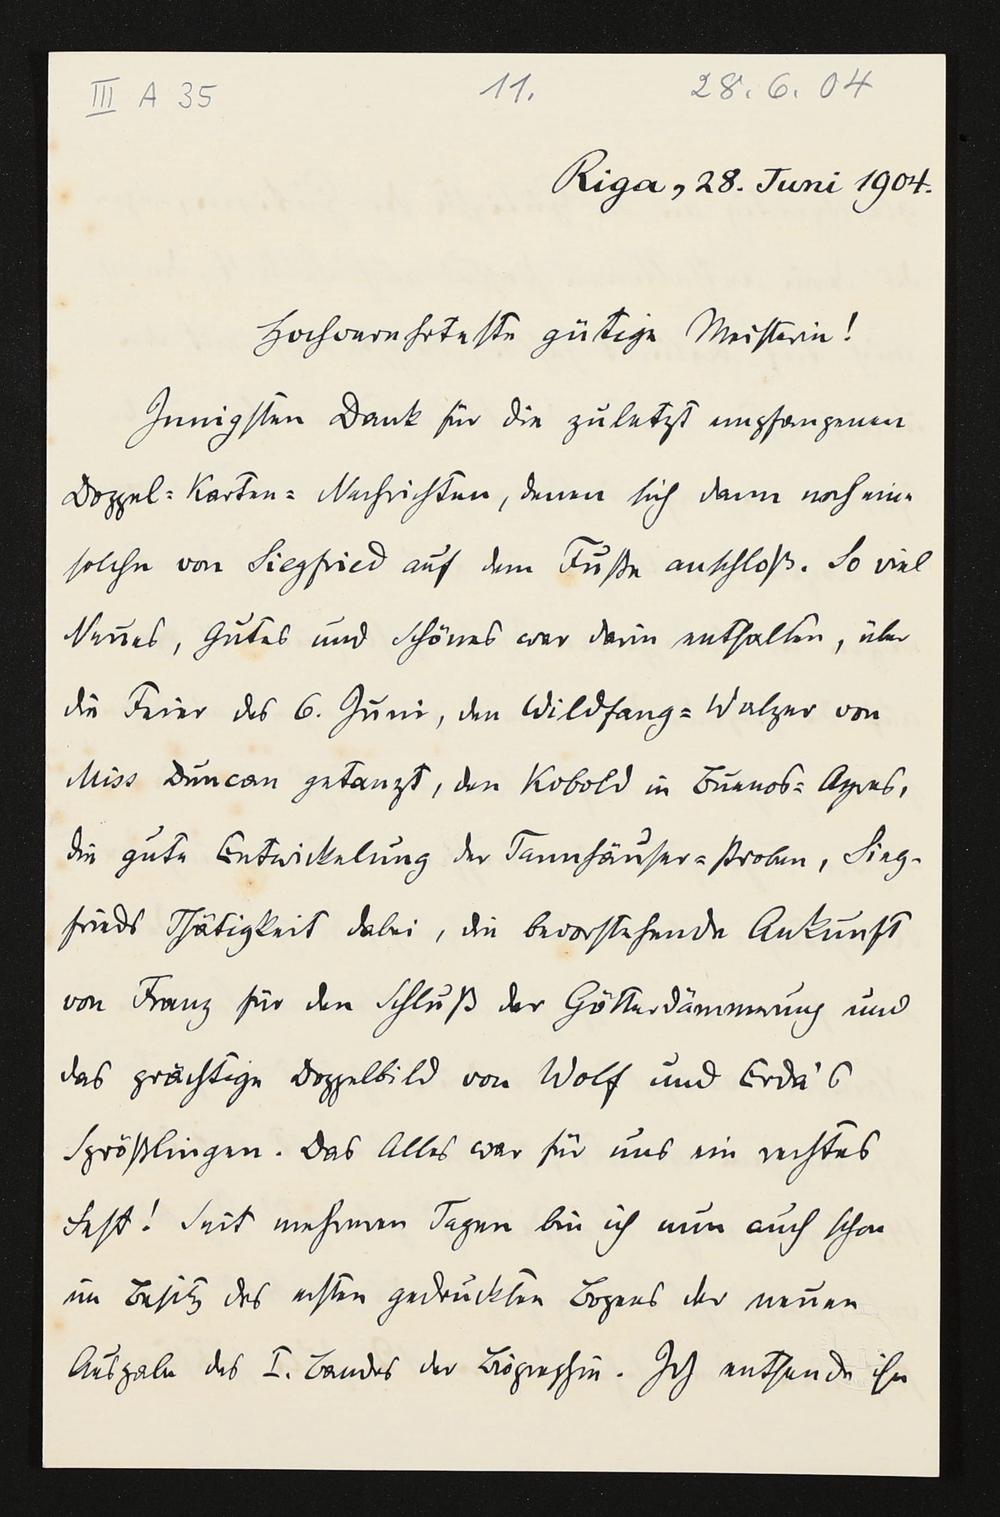 III A 35 11. 28.6.04
Riga, 28. Juni 1904.
Hochverehrteste gütige Meisterin!
Innigsten Dank für die zuletzt empfangenen
Doppel=Karten=Nachrichten, denen sich dann noch eine
solche von Siegfried auf dem Fuße anschloß. So viel
Neues, Gutes und Schönes war darin enthalten, über
die Feier des 6. Juni, den Wildfang=Walzer von
Miss Duncan getanzt, den Kobold in Buenos=Ayres,
die gute Entwickelung der Tannhäuser=Proben, Sieg-
frieds Thätigkeit dabei, die bevorstehende Ankunft
von Franz für den Schluß der Götterdämmerung und
das prächtige Doppelbild von Wolf und Erda's
Sprößlingen. Das Alles war für uns ein rechtes
Fest! Seit mehreren Tagen bin ich nun auch schon
im Besitz des ersten gedruckten Bogens der neuen
Ausgabe des I. Bandes der Biographie. Ich entsende ihn